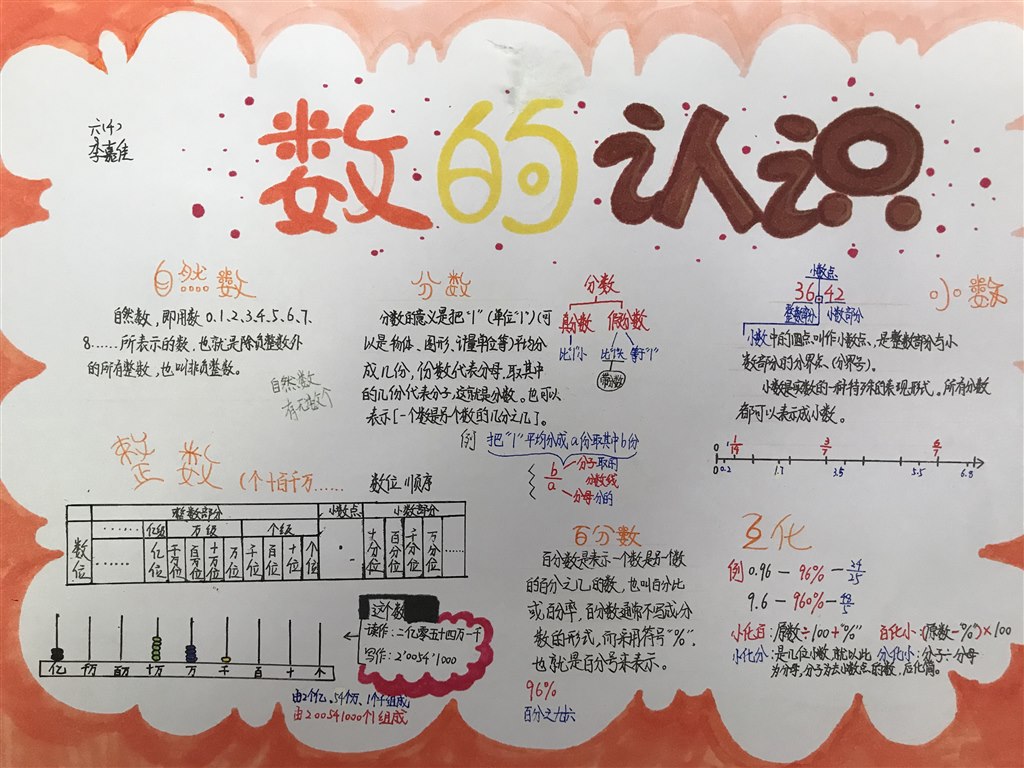 数的认识
六(4)
李嘉佳
自然数
自然数,即用数0.1.2.3.4.5.6.7.
8......所表示的数,也就是除负整数外
的所有整数,也叫非负整数。
自然数
有无数个
分数
分数的意义是把"1"(单位"1")(可
以是物体、图形、计量单位等)平均分
成几份,份数代表分母,取其中
的几份代表分子,这就是分数。也可以
表示[一个数是另个数的几分之几]。
分数
真分数 假分数
比"1"小 比"1"大 等于"1"
带分数
例 把"1"平均分成a份取其中b份
b/a
分子取的
分数线
分母分的
小数
小数点
36.42
整数部分 小数部分
小数中的圆点叫作小数点、是整数部分与小
数部分的分界点、(分界号)。
小数是实数的一种特殊的表现形式。所有分数
都可以表示成小数。
0 1/14 3/7 6/7
0 0.2 1.7 3.5 5.5 6.8
整数 (个十百千万......
数位顺序
整数部分 小数点 小数部分
...... 亿级 万级 个级
数位 ...... 亿位 千万位 百万位 十万位 万位 千位 百位 十位 个位 · 十分位 百分位 千分位 万分位 ......
亿 千万 百万 十万 万 千 百 十 个
这个数
读作:二亿零五十四万一千
写作:2'0054'1000
由2个亿、54个万、1个千组成
由200541000个1组成
百分数
百分数是表示一个数是另一个数
的百分之几的数,也叫百分比
或百分率,百分数通常不写成分
数的形式,而采用符号"%",
也就是百分号来表示。
96%
百分之九六
互化
例 0.96 — 96% — 24/25
9.6 — 960% — 48/5
小化百:原数÷100+"%" 百化小:(原数-"%")×100
小化分:是几位小数,就以此 分化小:分子÷分母
为分母,分子为去小数点的数,后化简。